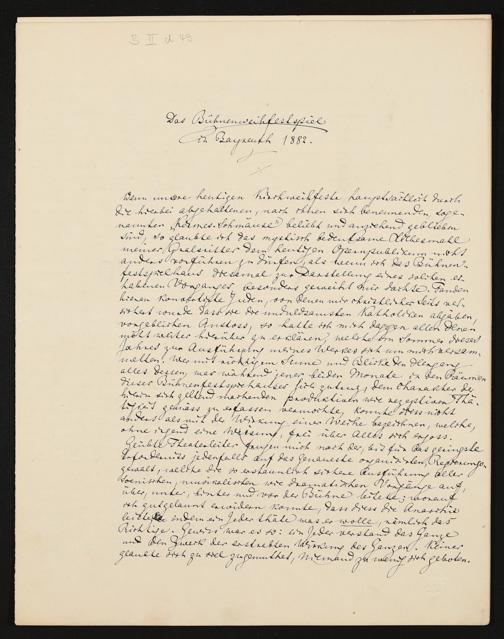 B II d 49
Das Bühnenweihfestspiel
in Bayreuth 1882.
Wenn unsere heutigen Kirchweihfeste hauptsächlich durch
die hierbei abgehaltenen, nach ihnen sich benennenden, sogenannten „Kirmes-Schmäuse" beliebt und anziehend geblieben
sind, so glaubte ich das mystisch bedeutsame Liebesmahl
meiner Gralsritter dem heutigen Opernpublikum nicht
anders vorführen zu dürfen, als wenn ich das Bühnenfestspielhaus diesmal zur Darstellung eines solchen erhabenen Vorganges besonders geweiht mir dachte. Fanden
hieran konvertirte Juden, von denen mir christlicherseits versichert wurde dass sie die unduldsamsten Katholiken abgäben,
vorgeblichen Anstoss, so hatte ich mich dagegen allen Denen
nicht weiter hierüber zu erklären, welche im Sommer dieses
Jahres zur Aufführung meines Werkes sich um mich versammelten. Wer mit richtigem Sinne und Blicke den Hergang
alles Dessen, was während jener beiden Monate in den Räumen
dieses Bühnenfestspielhauses sich zutrug, dem Charakter der
hierin sich geltend machenden produktiven wie rezeptiven Thätigkeit gemäss zu erfassen vermochte, konnte diess nicht
anders als mit der Wirkung einer Weihe bezeichnen, welche,
ohne irgend eine Weisung, frei über Alles sich ergoss.
Geübte Theaterleiter frugen mich nach der, bis für das geringste
Erforderniss jedenfalls auf das Genaueste organisirten, Regierungsgewalt, welche die so erstaunlich sichere Ausführung aller
scenischen, musikalischen wie dramatischen Vorgänge auf,
über, unter, hinter und vor der Bühne leitete; worauf
ich gutgelaunt erwidern konnte, dass diess die Anarchie
leiste, indem ein Jeder thäte was er wolle, nämlich das
Richtige. Gewiss war es so: ein Jeder verstand das Ganze
und den Zweck der erstrebten Wirkung des Ganzen. Keiner
glaubte sich zu viel zugemuthet, Niemand zu wenig sich geboten.